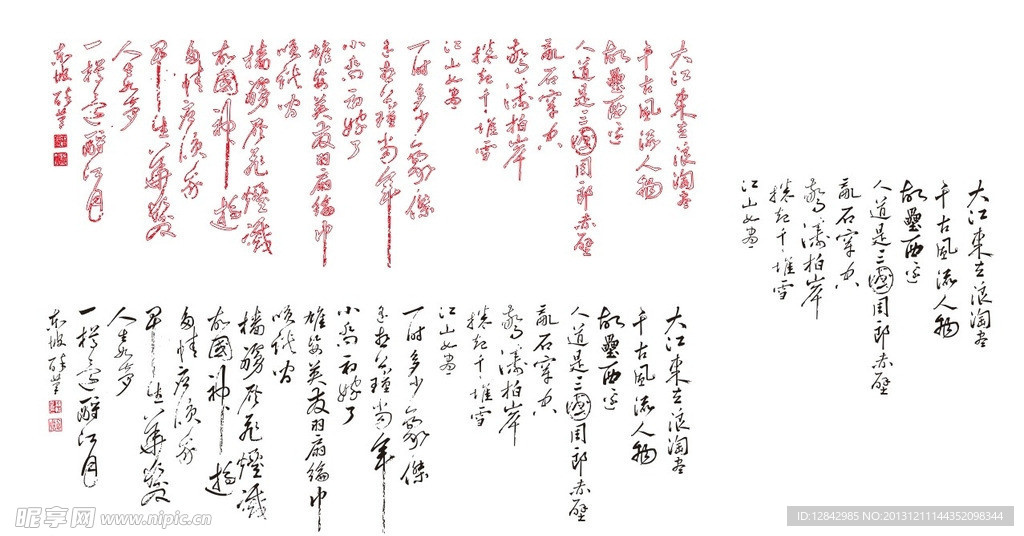 大江東去浪淘盡
千古風流人物
故壘西邊
人道是三國周郎赤壁
亂石穿空
驚濤拍岸
捲起千堆雪
江山如畫
一時多少豪傑
遙想公瑾當年
小喬初嫁了
雄姿英发羽扇綸巾
咲談間
檣艣灰飛煙滅
故國神遊
多情應咲我
早生華髮
人生如夢
一樽還酹江月
東坡醉筆
大江東去浪淘盡
千古風流人物
故壘西邊
人道是三國周郎赤壁
亂石穿空
驚濤拍岸
捲起千堆雪
江山如畫
一時多少豪傑
遙想公瑾當年
小喬初嫁了
雄姿英发羽扇綸巾
咲談間
檣艣灰飛煙滅
故國神遊
多情應咲我
早生華髮
人生如夢
一樽還酹江月
東坡醉筆
大江東去浪淘盡
千古風流人物
故壘西邊
人道是三國周郎赤壁
亂石穿空
驚濤拍岸
捲起千堆雪
江山如畫
昵享网 www.nipic.cn
ID:12842985 NO:20131211144352098344